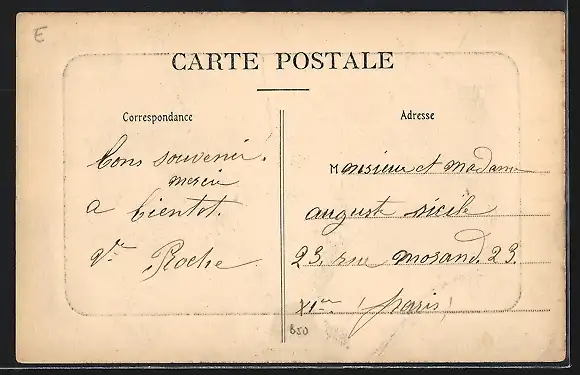 E
CARTE POSTALE
Correspondance
Adresse
bons souvenir.
merci
a bientot.
Vve Roche
Monsieur et Madame
auguste sicile
23, rue morand. 23.
XIem (paris)
850